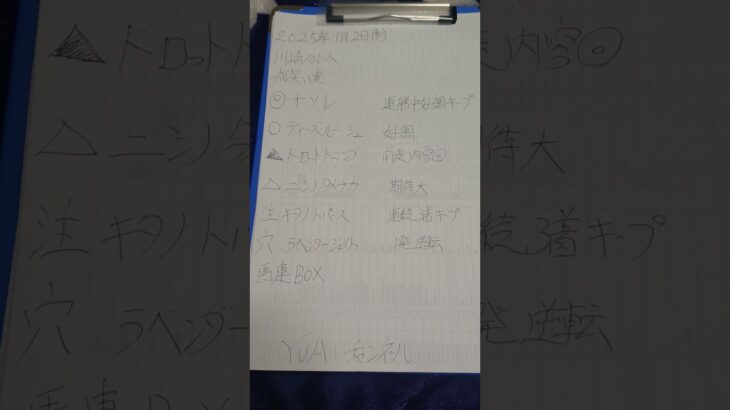 2025年1月2日(木)
川崎10レース
◎オソレ 連勝中好調キープ
○ディースルーシュ 好調
▲ドロットトニング 前走内容◎
△ニシノタメチカ 期待大
注キタノトパース 連続3着キープ
穴ラベンダージェイト 1発逆転
馬連BOX
YUA チャンネル